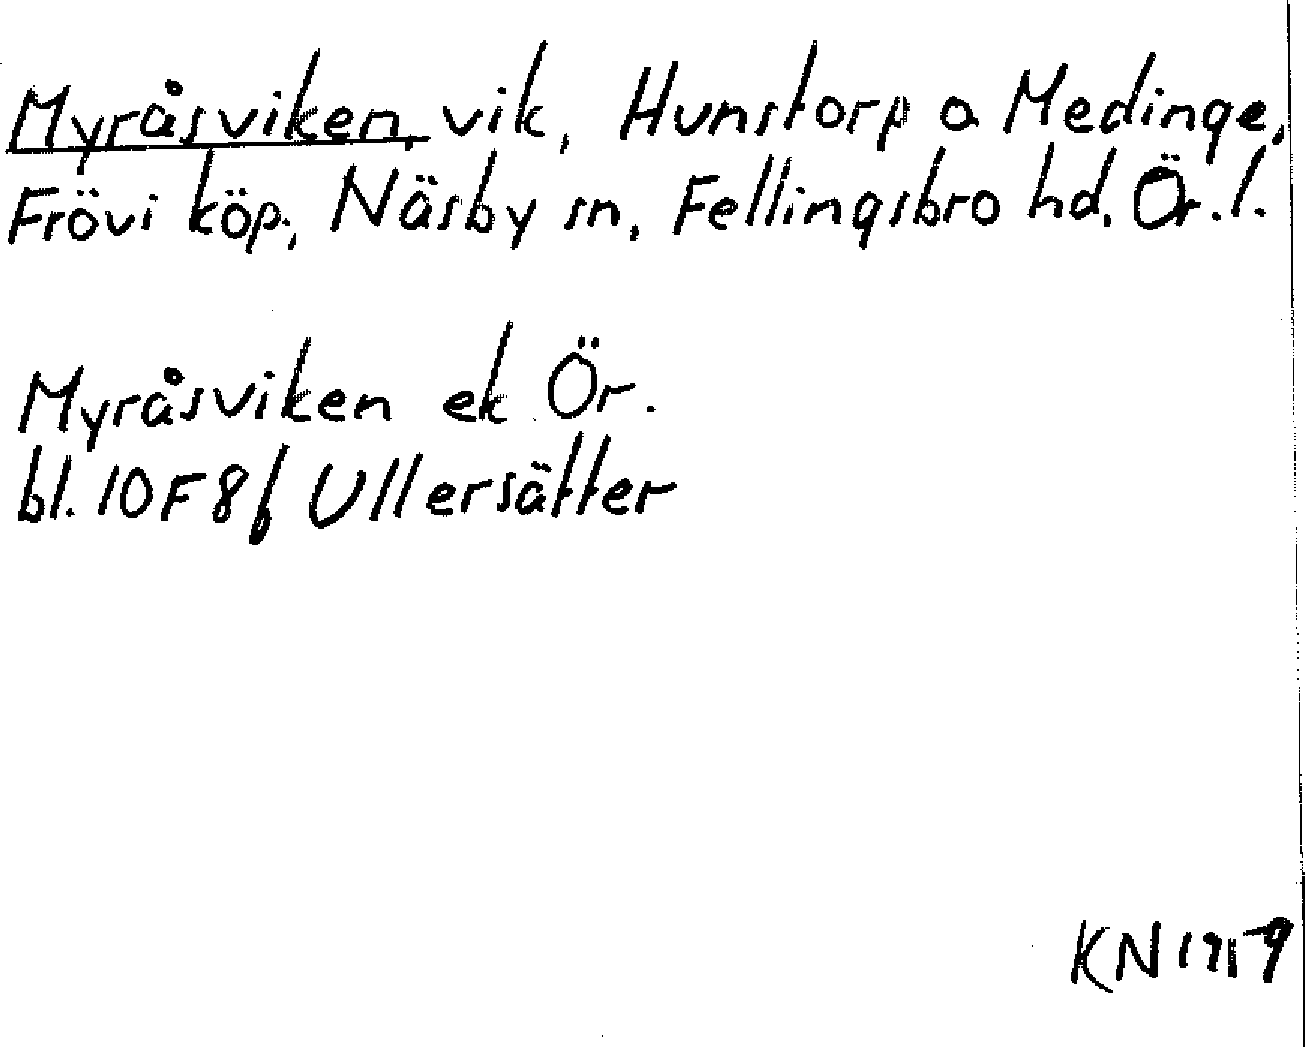 Myråsviken, vik, Hunstorp o Medinge,
Frövi köp., Näsby sn, Fellingsbro hd. Ör. l.
Myråsviken ek Ör.
bl. 10F8f Ullersätter
KN